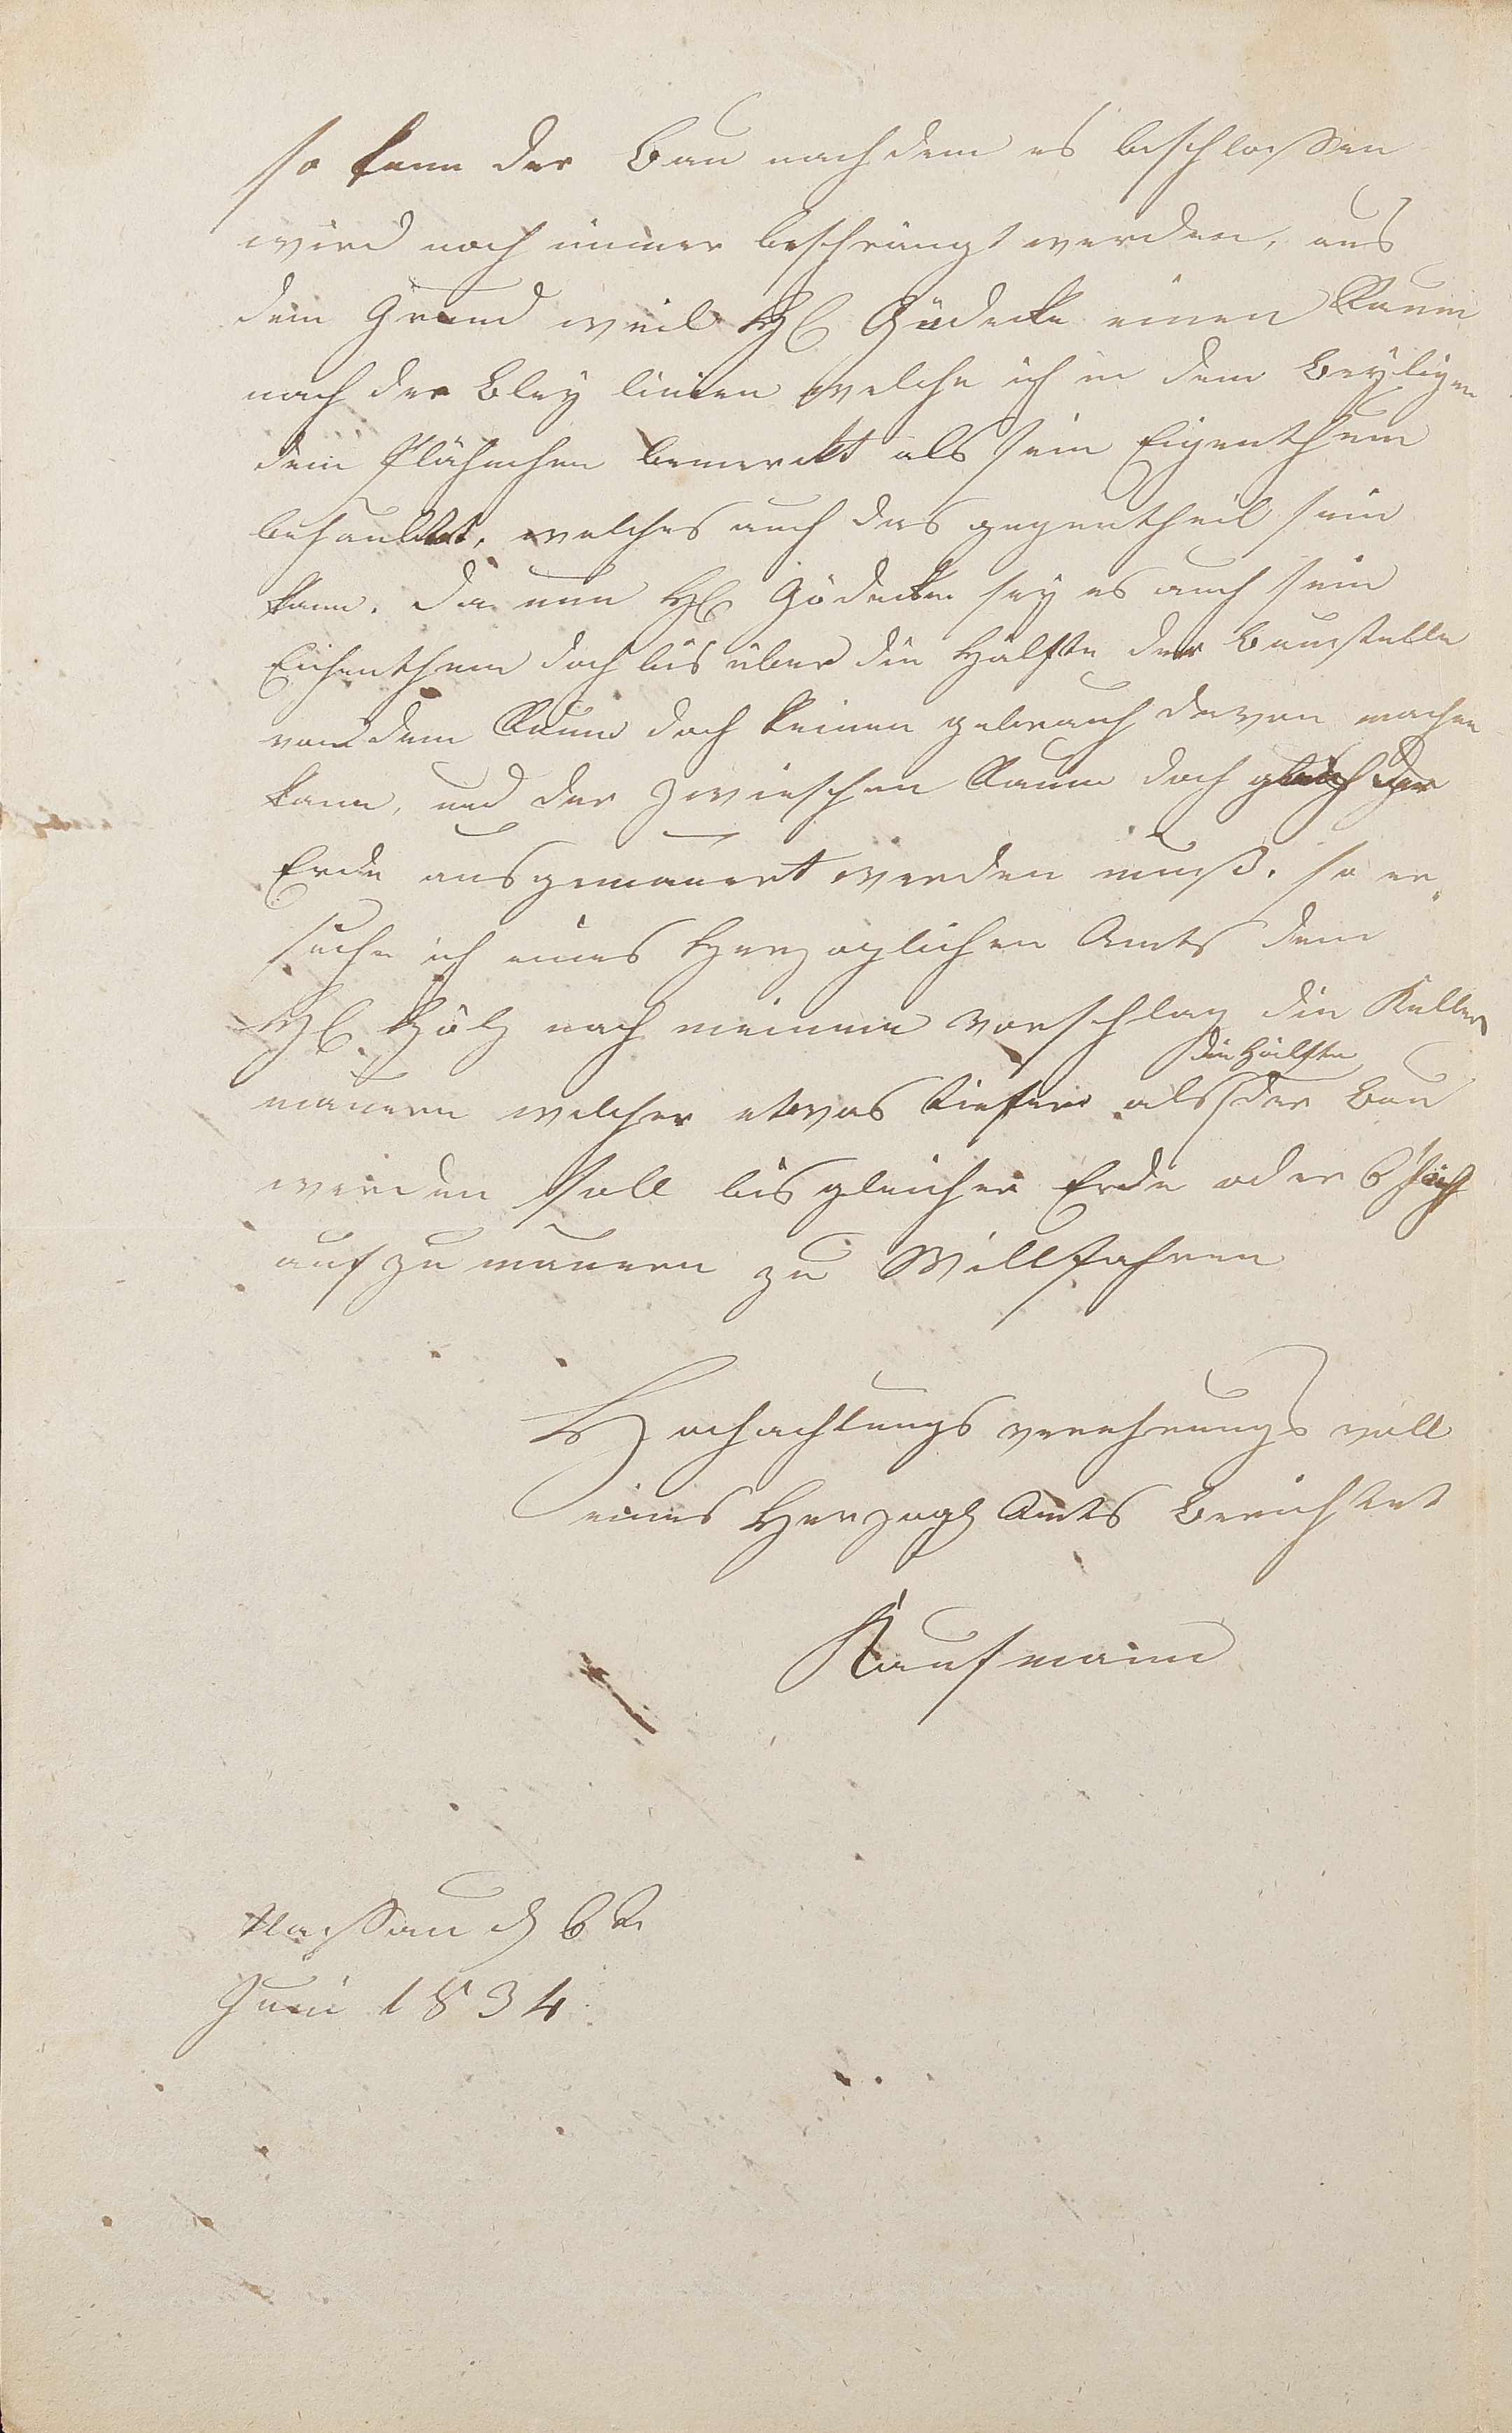 so kann der Bau nachdem es beschlossen
wird noch immer beschrängt werden, aus
dem Grund weil H Gödecke einen Raum
nach der Bley linien welche ich in dem Beyligen
dem Plähnchen bemerckt als sein Eigenthum
behaubtet, welches auch das gegentheil sein
kann. Da nun H Gödecke sey es auch sein
Eichenthum doch bis über die Hälfte der Baustelle
von dem Raum doch keinen gebrauch davon machen
kann, und der zwieschen Raum doch gleich der
Erde ausgemauert werden muß. so er¬
suche ich eines Herzoglichen Amts dem
H nach meinem vorschlag die Keller
die Hälfte
mauern welcher etwas tiefer als der Bau
werden soll bis gleicher Erde oder 6
aufzumauern zu Willfahren
Hochachtungs verehrungs voll
eines Herzogl Amts Berichtet
Kaufmann
Nassau d 6t
Juni 1834.